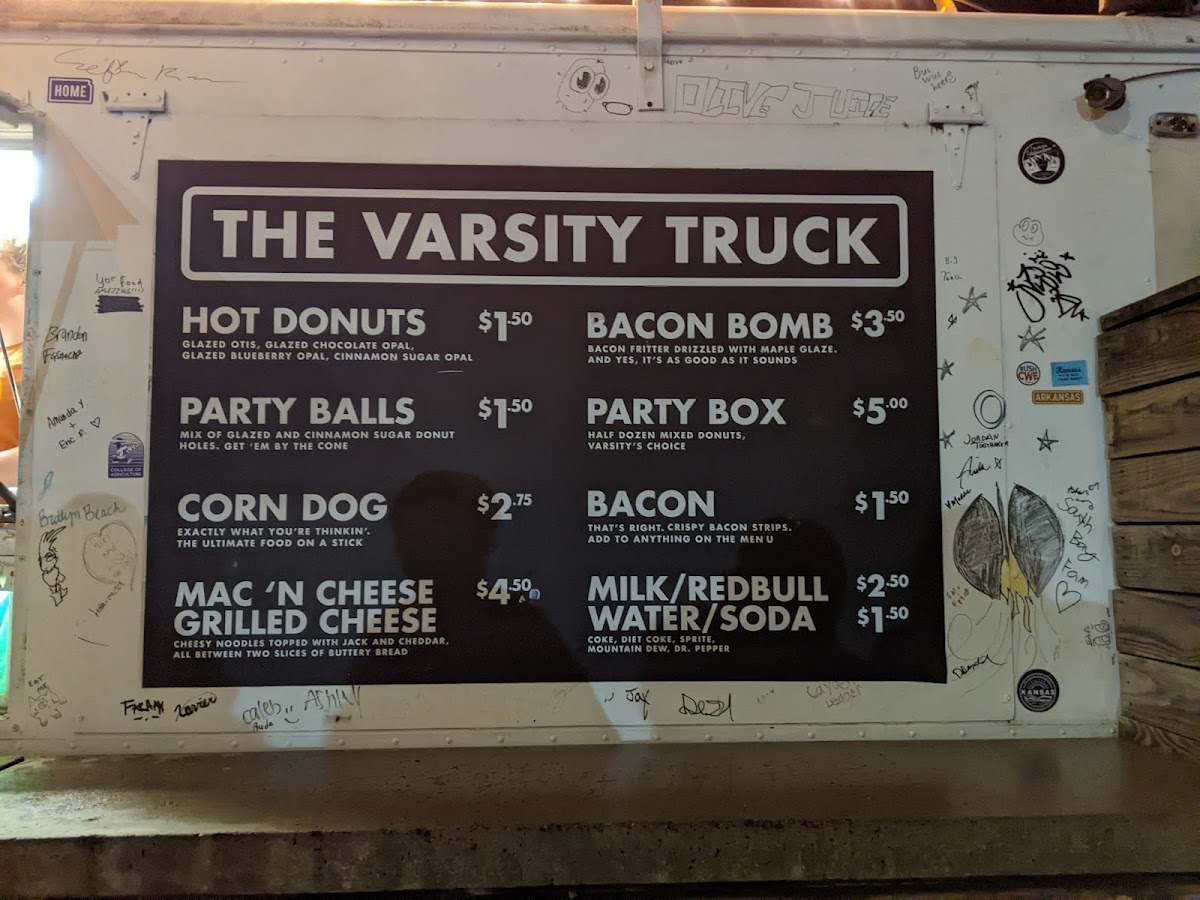 HOME
OLIVE JUICE
THE VARSITY TRUCK
HOT DONUTS $1.50
GLAZED OTIS, GLAZED CHOCOLATE OPAL,
GLAZED BLUEBERRY OPAL, CINNAMON SUGAR OPAL
PARTY BALLS $1.50
MIX OF GLAZED AND CINNAMON SUGAR DONUT
HOLES. GET 'EM BY THE CONE
CORN DOG $2.75
EXACTLY WHAT YOU'RE THINKIN'.
THE ULTIMATE FOOD ON A STICK
MAC 'N CHEESE $4.50
GRILLED CHEESE
CHEESY NOODLES TOPPED WITH JACK AND CHEDDAR,
ALL BETWEEN TWO SLICES OF BUTTERY BREAD
BACON BOMB $3.50
BACON FRITTER DRIZZLED WITH MAPLE GLAZE.
AND YES, IT'S AS GOOD AS IT SOUNDS
PARTY BOX $5.00
HALF DOZEN MIXED DONUTS,
VARSITY'S CHOICE
BACON $1.50
THAT'S RIGHT. CRISPY BACON STRIPS.
ADD TO ANYTHING ON THE MENU
MILK/REDBULL $2.50
WATER/SODA $1.50
COKE, DIET COKE, SPRITE,
MOUNTAIN DEW, DR. PEPPER
Yor Food
Brandon
Amanda Y.
+
Eric R.
COLLEGE OF
AGRICULTURE
Brooklyn Beach
EAT
ME
FARAHH
Xavier
caleb
Dude
ASHLEY
Jax
RUSH
CWE
Kansas
ARKANSAS
JORDAN
Fam
KANSAS